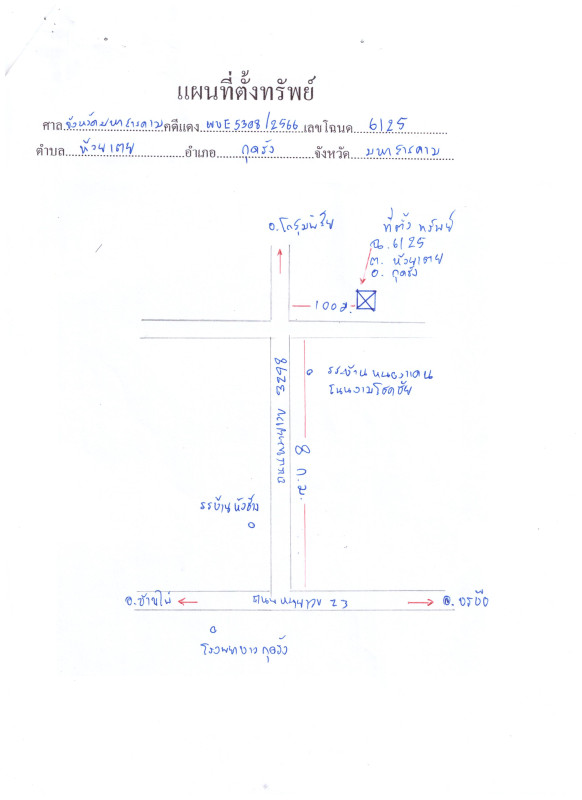 แผนที่ตั้งทรัพย์
ศาล จังหวัดมหาสารคาม คดีแดง ผบE5308/2566 เลขโฉนด 6125
ตำบล ห้วยเตย อำเภอ กุดรัง จังหวัด มหาสารคาม
อ.โกสุมพิสัย
ที่ตั้งทรัพย์
ฉ.6125
ต. ห้วยเตย
อ. กุดรัง
100ม.
รร.บ้านหนองแคน
โนนงามโชคชัย
2298
8 ก.ม.
อ.บ้านไผ่
ถนนหมายเลข 23
อ. บรบือ
โรงพยาบาลกุดรัง